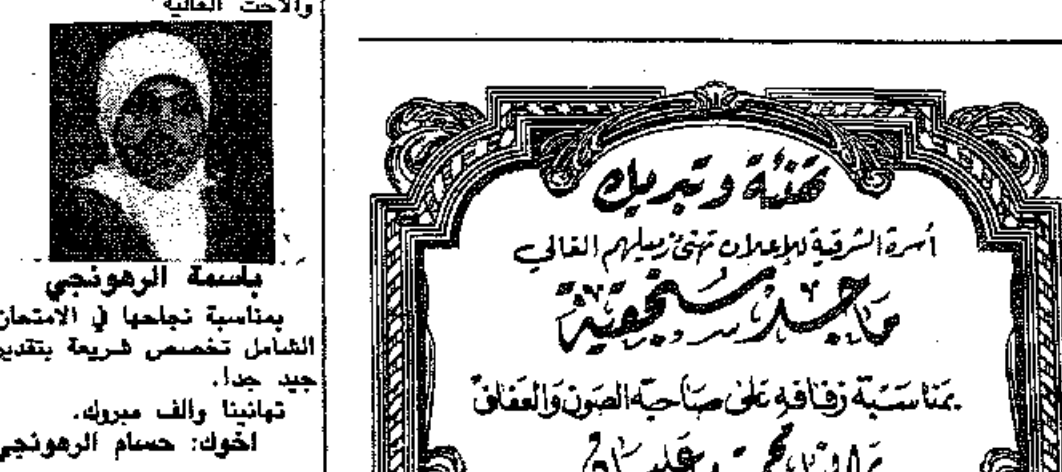 والأخت الغالية
باسمة الرهونجي
بمناسبة نجاحها في الامتحان
الشامل تخصص شريعة بتقدير
جيد جدا.
تهانينا والف مبروك.
اخوك: حسام الرهونجي
تهنئة وتبريك
أسرة الشرقية للإعلان تهنئ زميلهم الغالي
ماجد
بمناسبة زفافه على صاحبة الصون والعفاف